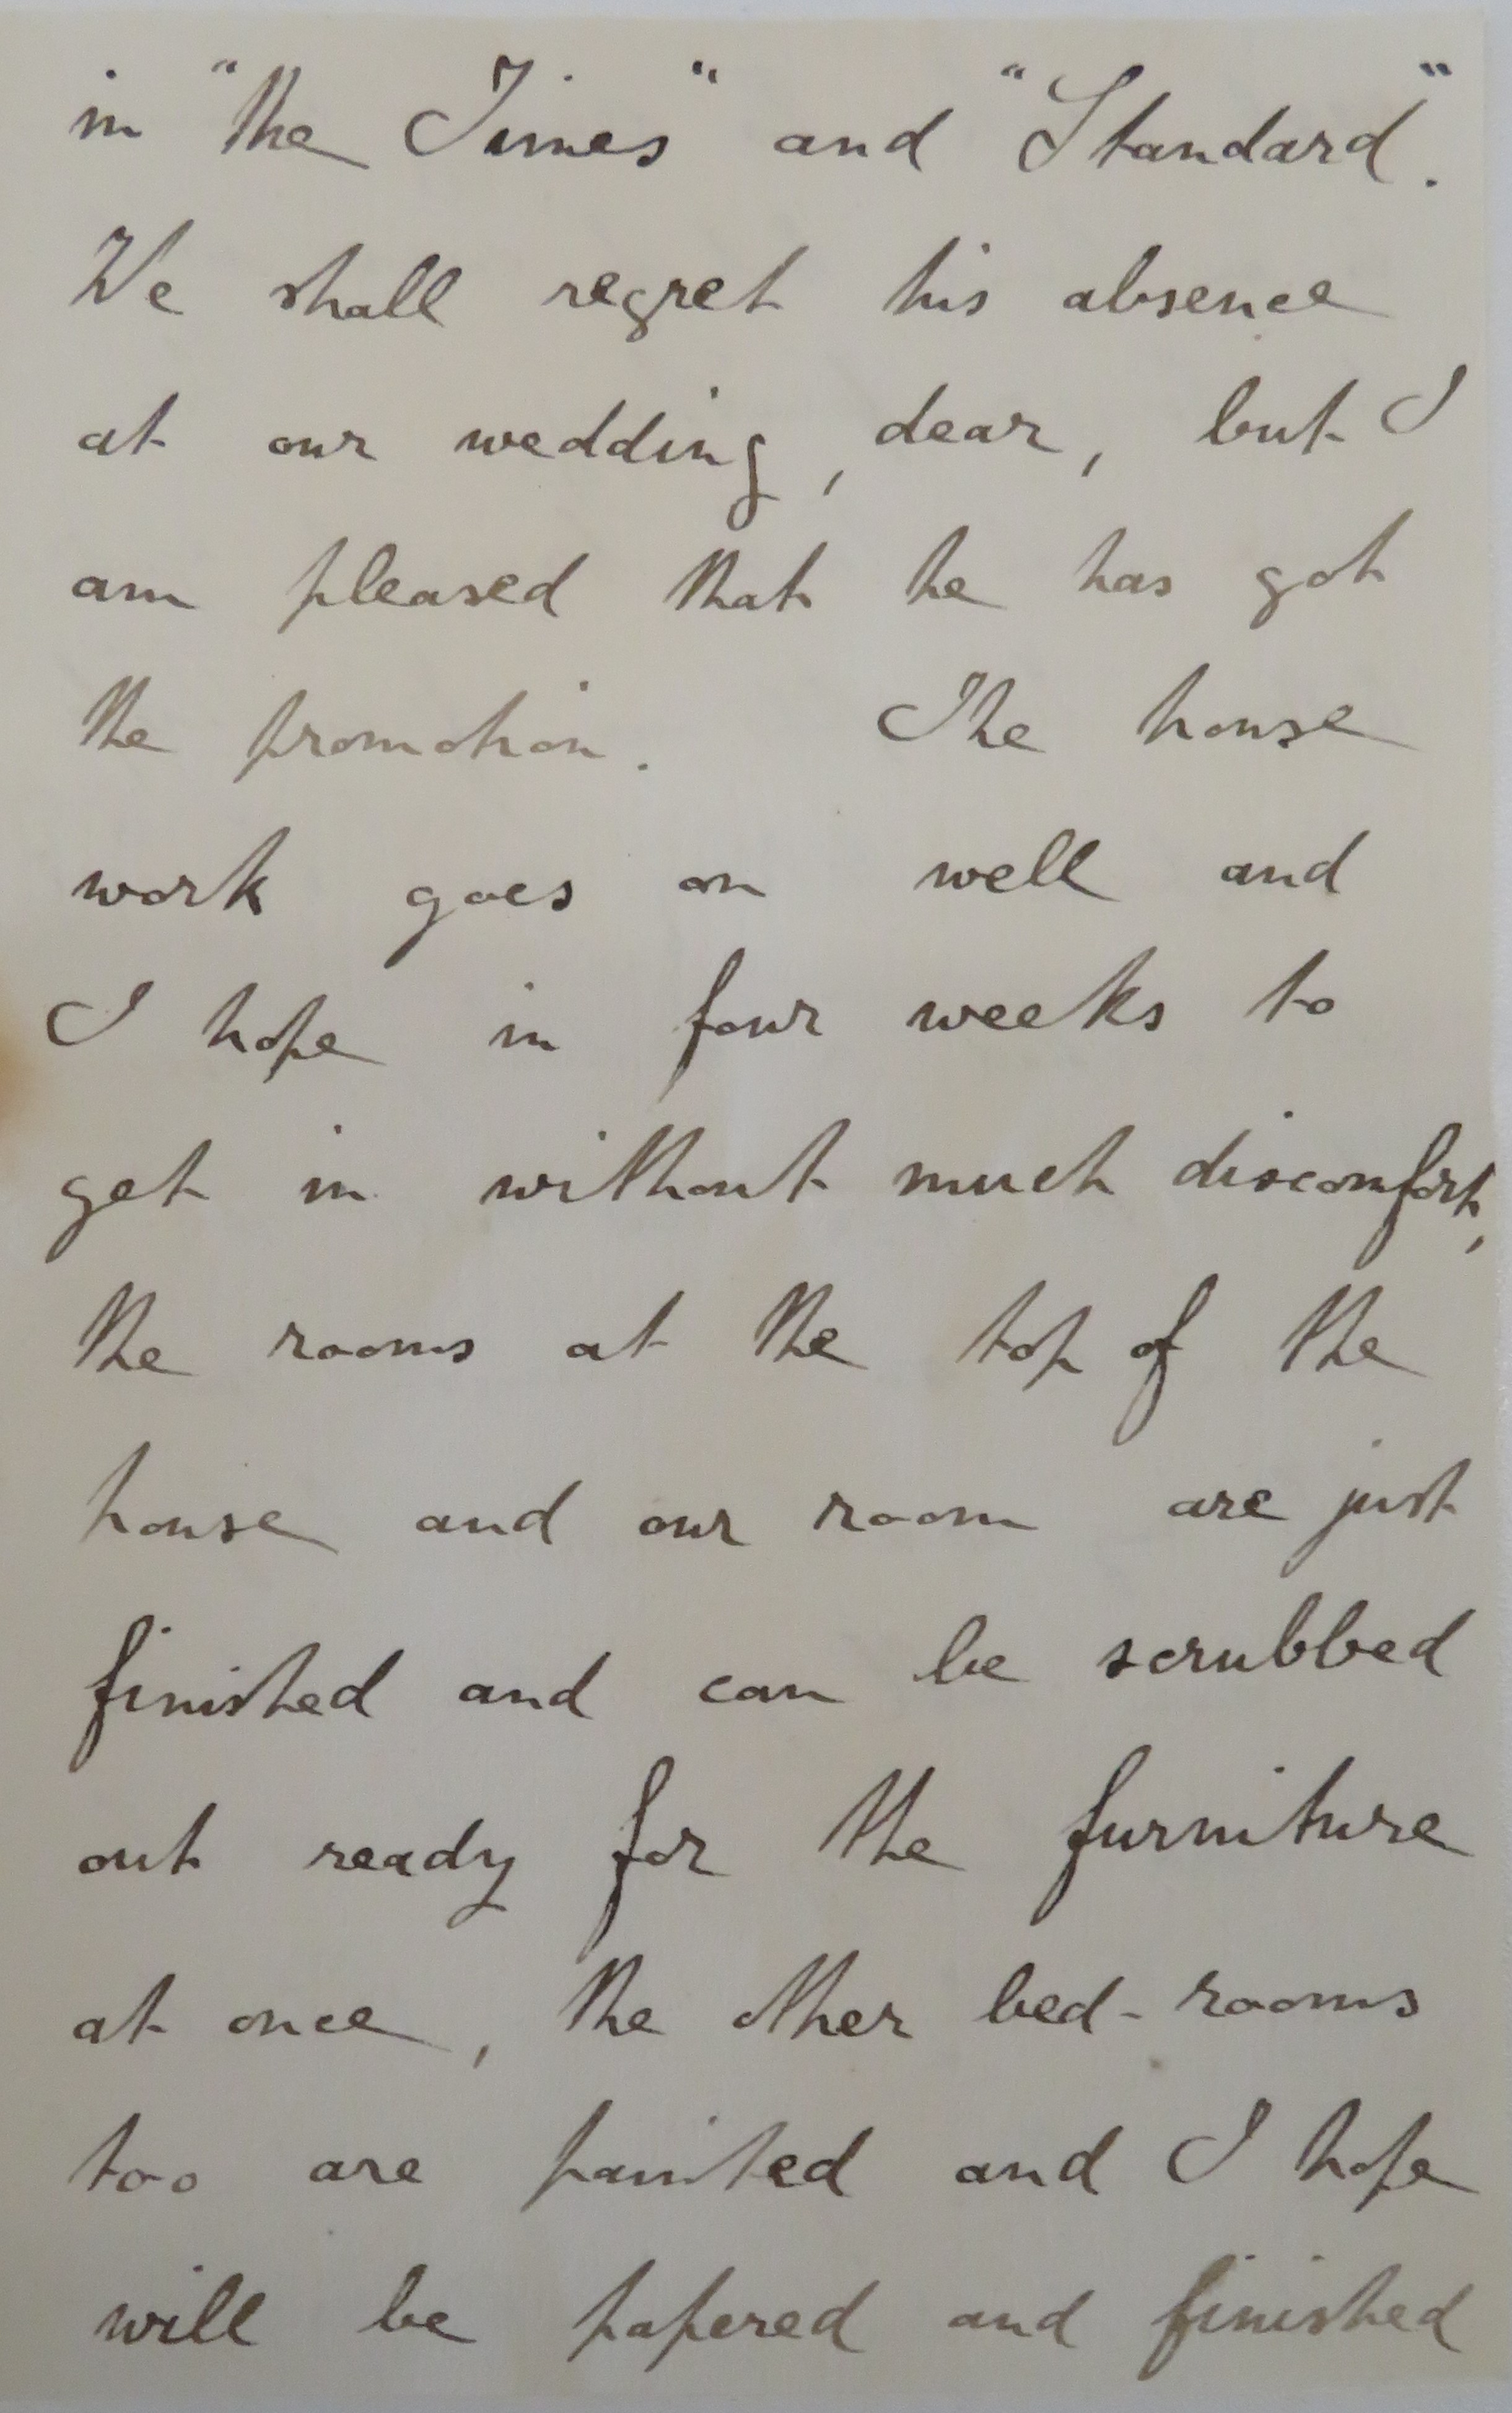 in "the Times" and "Standard".
We shall regret his absence
at our wedding, dear, but I
am pleased that he has got
the promotion. The house
work goes on well and
I hope in four weeks to
get in without much discomfort,
the rooms at the top of the
house and our room are just
finished and can be scrubbed
out ready for the furniture
at once, the other bed-rooms
too are painted and I hope
will be papered and finished